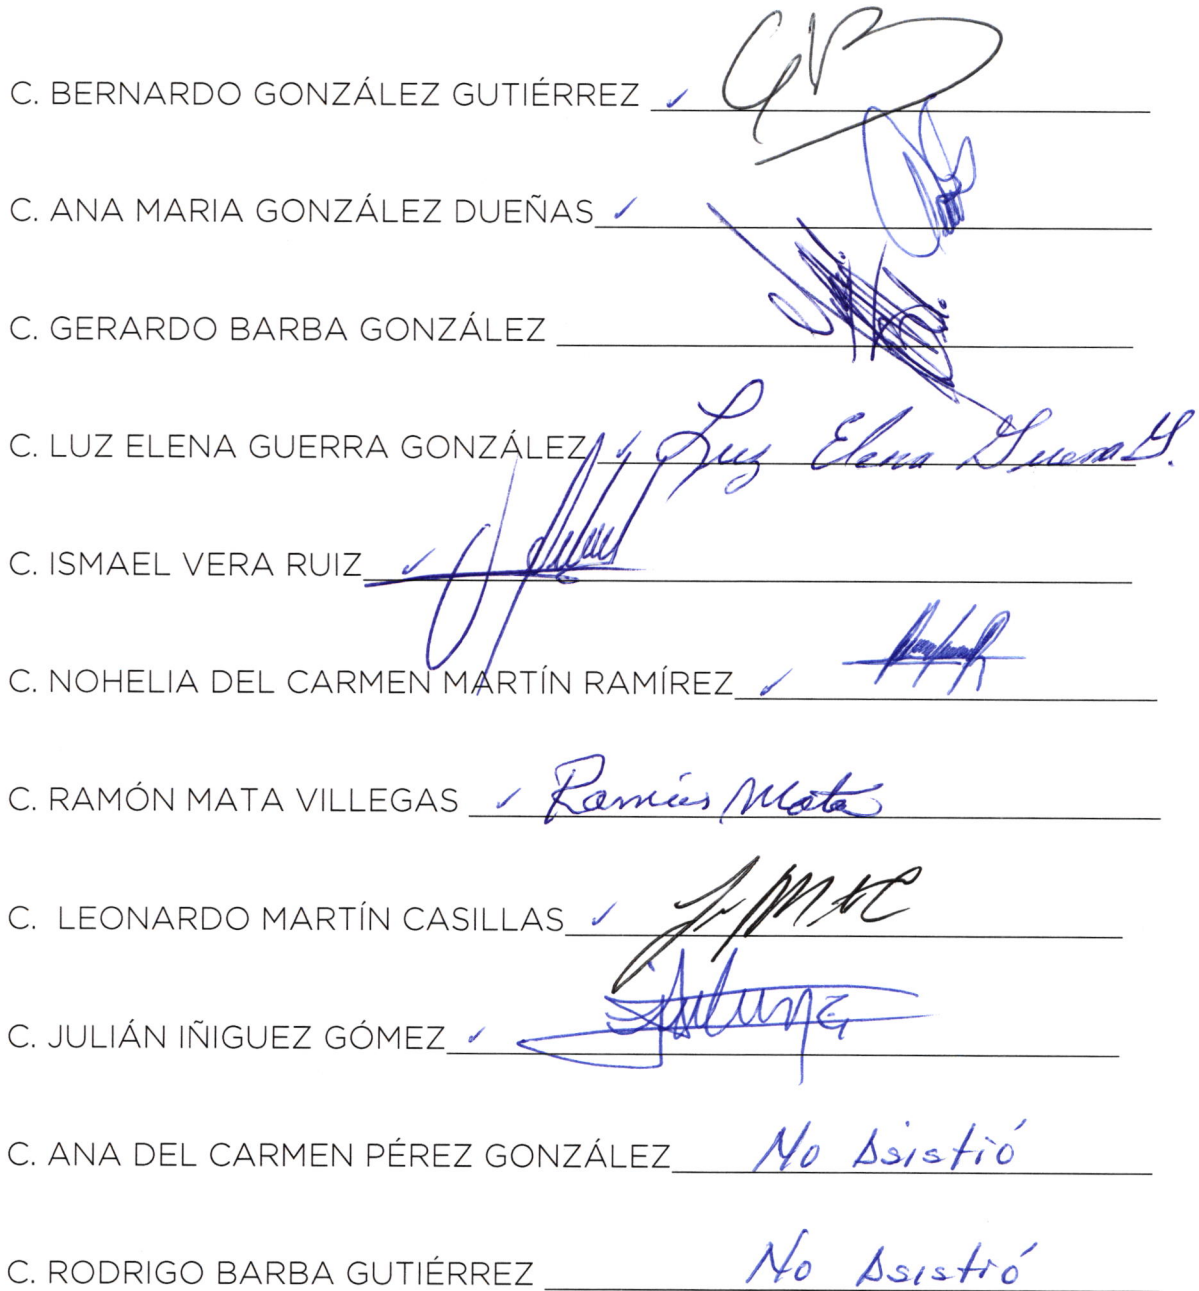 C. BERNARDO GONZÁLEZ GUTIÉRREZ
C. ANA MARIA GONZÁLEZ DUEÑAS
C. GERARDO BARBA GONZÁLEZ
C. LUZ ELENA GUERRA GONZÁLEZ Luz Elena Guerra G.
C. ISMAEL VERA RUIZ
C. NOHELIA DEL CARMEN MARTÍN RAMÍREZ
C. RAMÓN MATA VILLEGAS Ramón Mata
C. LEONARDO MARTÍN CASILLAS
C. JULIÁN IÑIGUEZ GÓMEZ
C. ANA DEL CARMEN PÉREZ GONZÁLEZ No Asistió
C. RODRIGO BARBA GUTIÉRREZ No Asistió